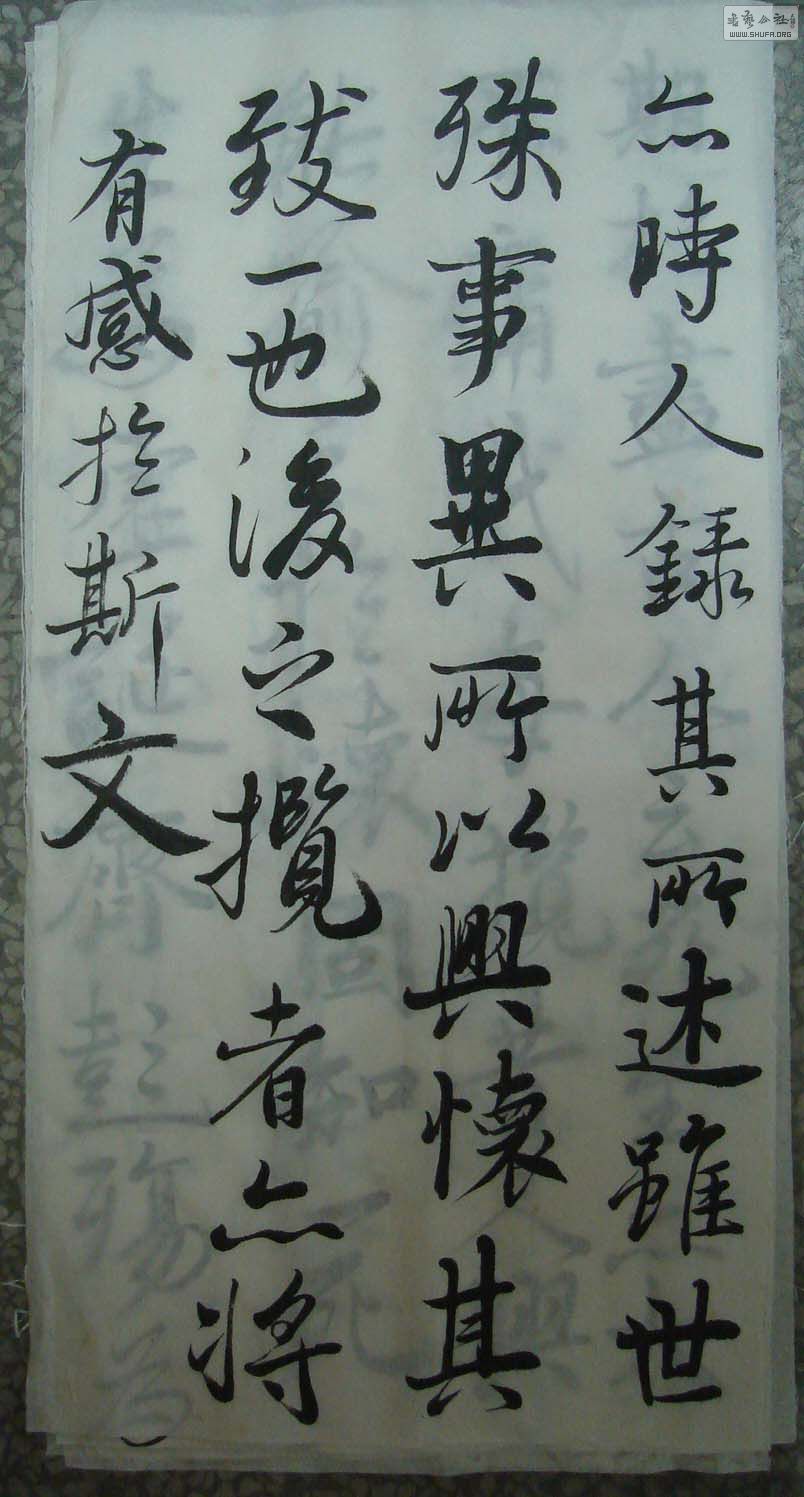 亦時人錄其所述雖世
殊事異所以興懷其
致一也後之攬者亦將
有感於斯文
書藝公社
WWW.SHUFA.ORG